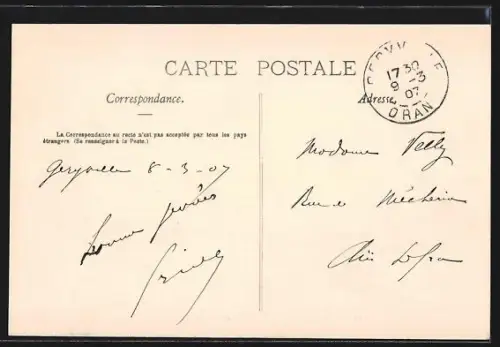 CARTE POSTALE
Correspondance.
La Correspondance au recto n'est pas acceptée par tous les pays
étrangers. (Se renseigner à la Poste.)
Geryville 8-3-07
Bonne
Adresse
GERYVILLE
17 30
9 -3
07
ORAN
Madame Velly
Rue de Mécheria
Aïn Sefra